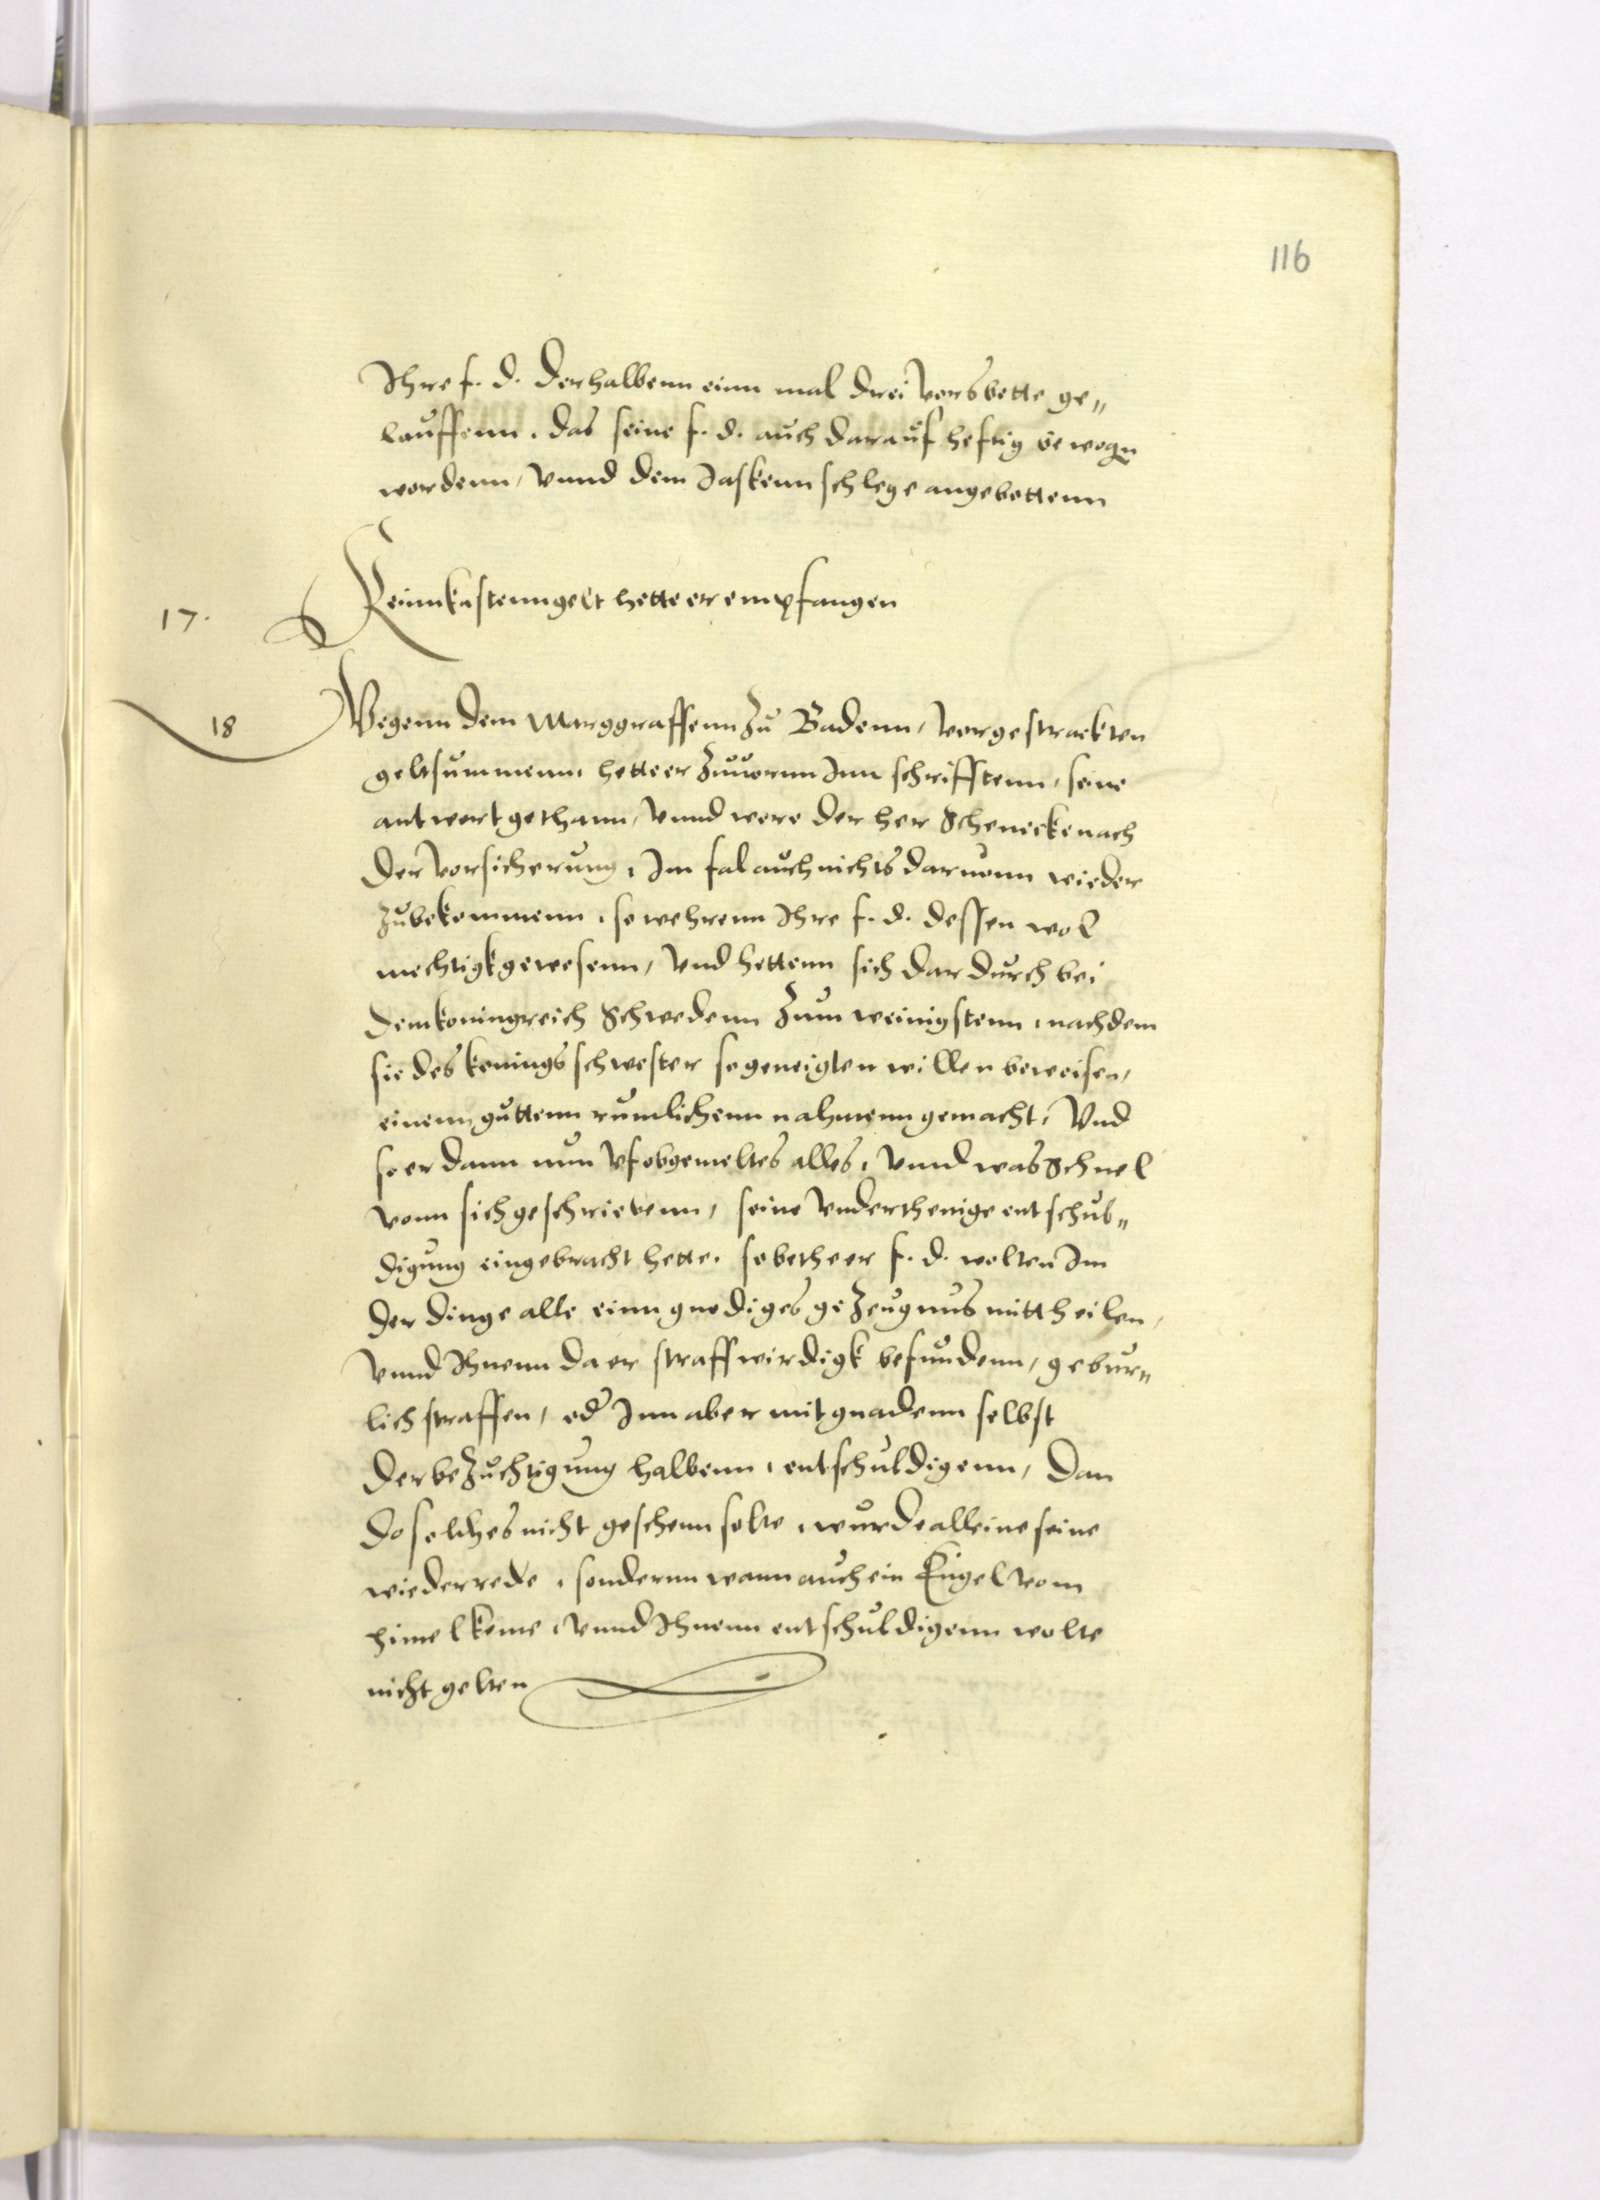 116
Ihre f. d. derhalbenn einn mal drei vors bette ge„
lauffenn, das seine f. d. auch darauf heftig bewogn
wordenn, vnnd dem Jaskenn schlege angebottenn
17. Keinn kastenngelt hette er empfangen
18 Wegenn dem Marggraffenn zu Badenn, vorgestracktenn
geltsummenn, hette er zuuornn Inn schrifftenn, seine
antwort gethann, vnnd were der her Schenecke nach
der vorsicherung, Im fal auch nichts daruonn wieder
zubekommenn, so wehrenn Ihre f. d. dessen wol
mechtigk gewesenn, vnd hettenn sich dardurch bei
dem koningreich Schwedenn zum weinigstenn, nachdem
sie des konings schwester so geneigten willen beweisen,
einenn guttenn rumlichenn nahmenn gemacht, Vnd
so er dann nun vf obgemeltes alles, vnnd was Schnel
vonn sich geschriebenn, seine vnderthenige entschul„
digung eingebracht hette, so bethe er f. d. wolten Im
der dinge alle einn gnediges gezeugnus mittheilen,
vnnd Ihnenn da er straffwirdigk befundenn, gebur„
lich straffen, od Inn aber mit gnadenn selbst
der bezuchtigung halbenn, entschuldigenn, Dan
do solches nicht geschenn solte, wurde alleine seine
wiederrede, sondernn wann auch ein Engel vom
himel keme, vnnd Ihnenn entschuldigenn wolte
nicht gelten